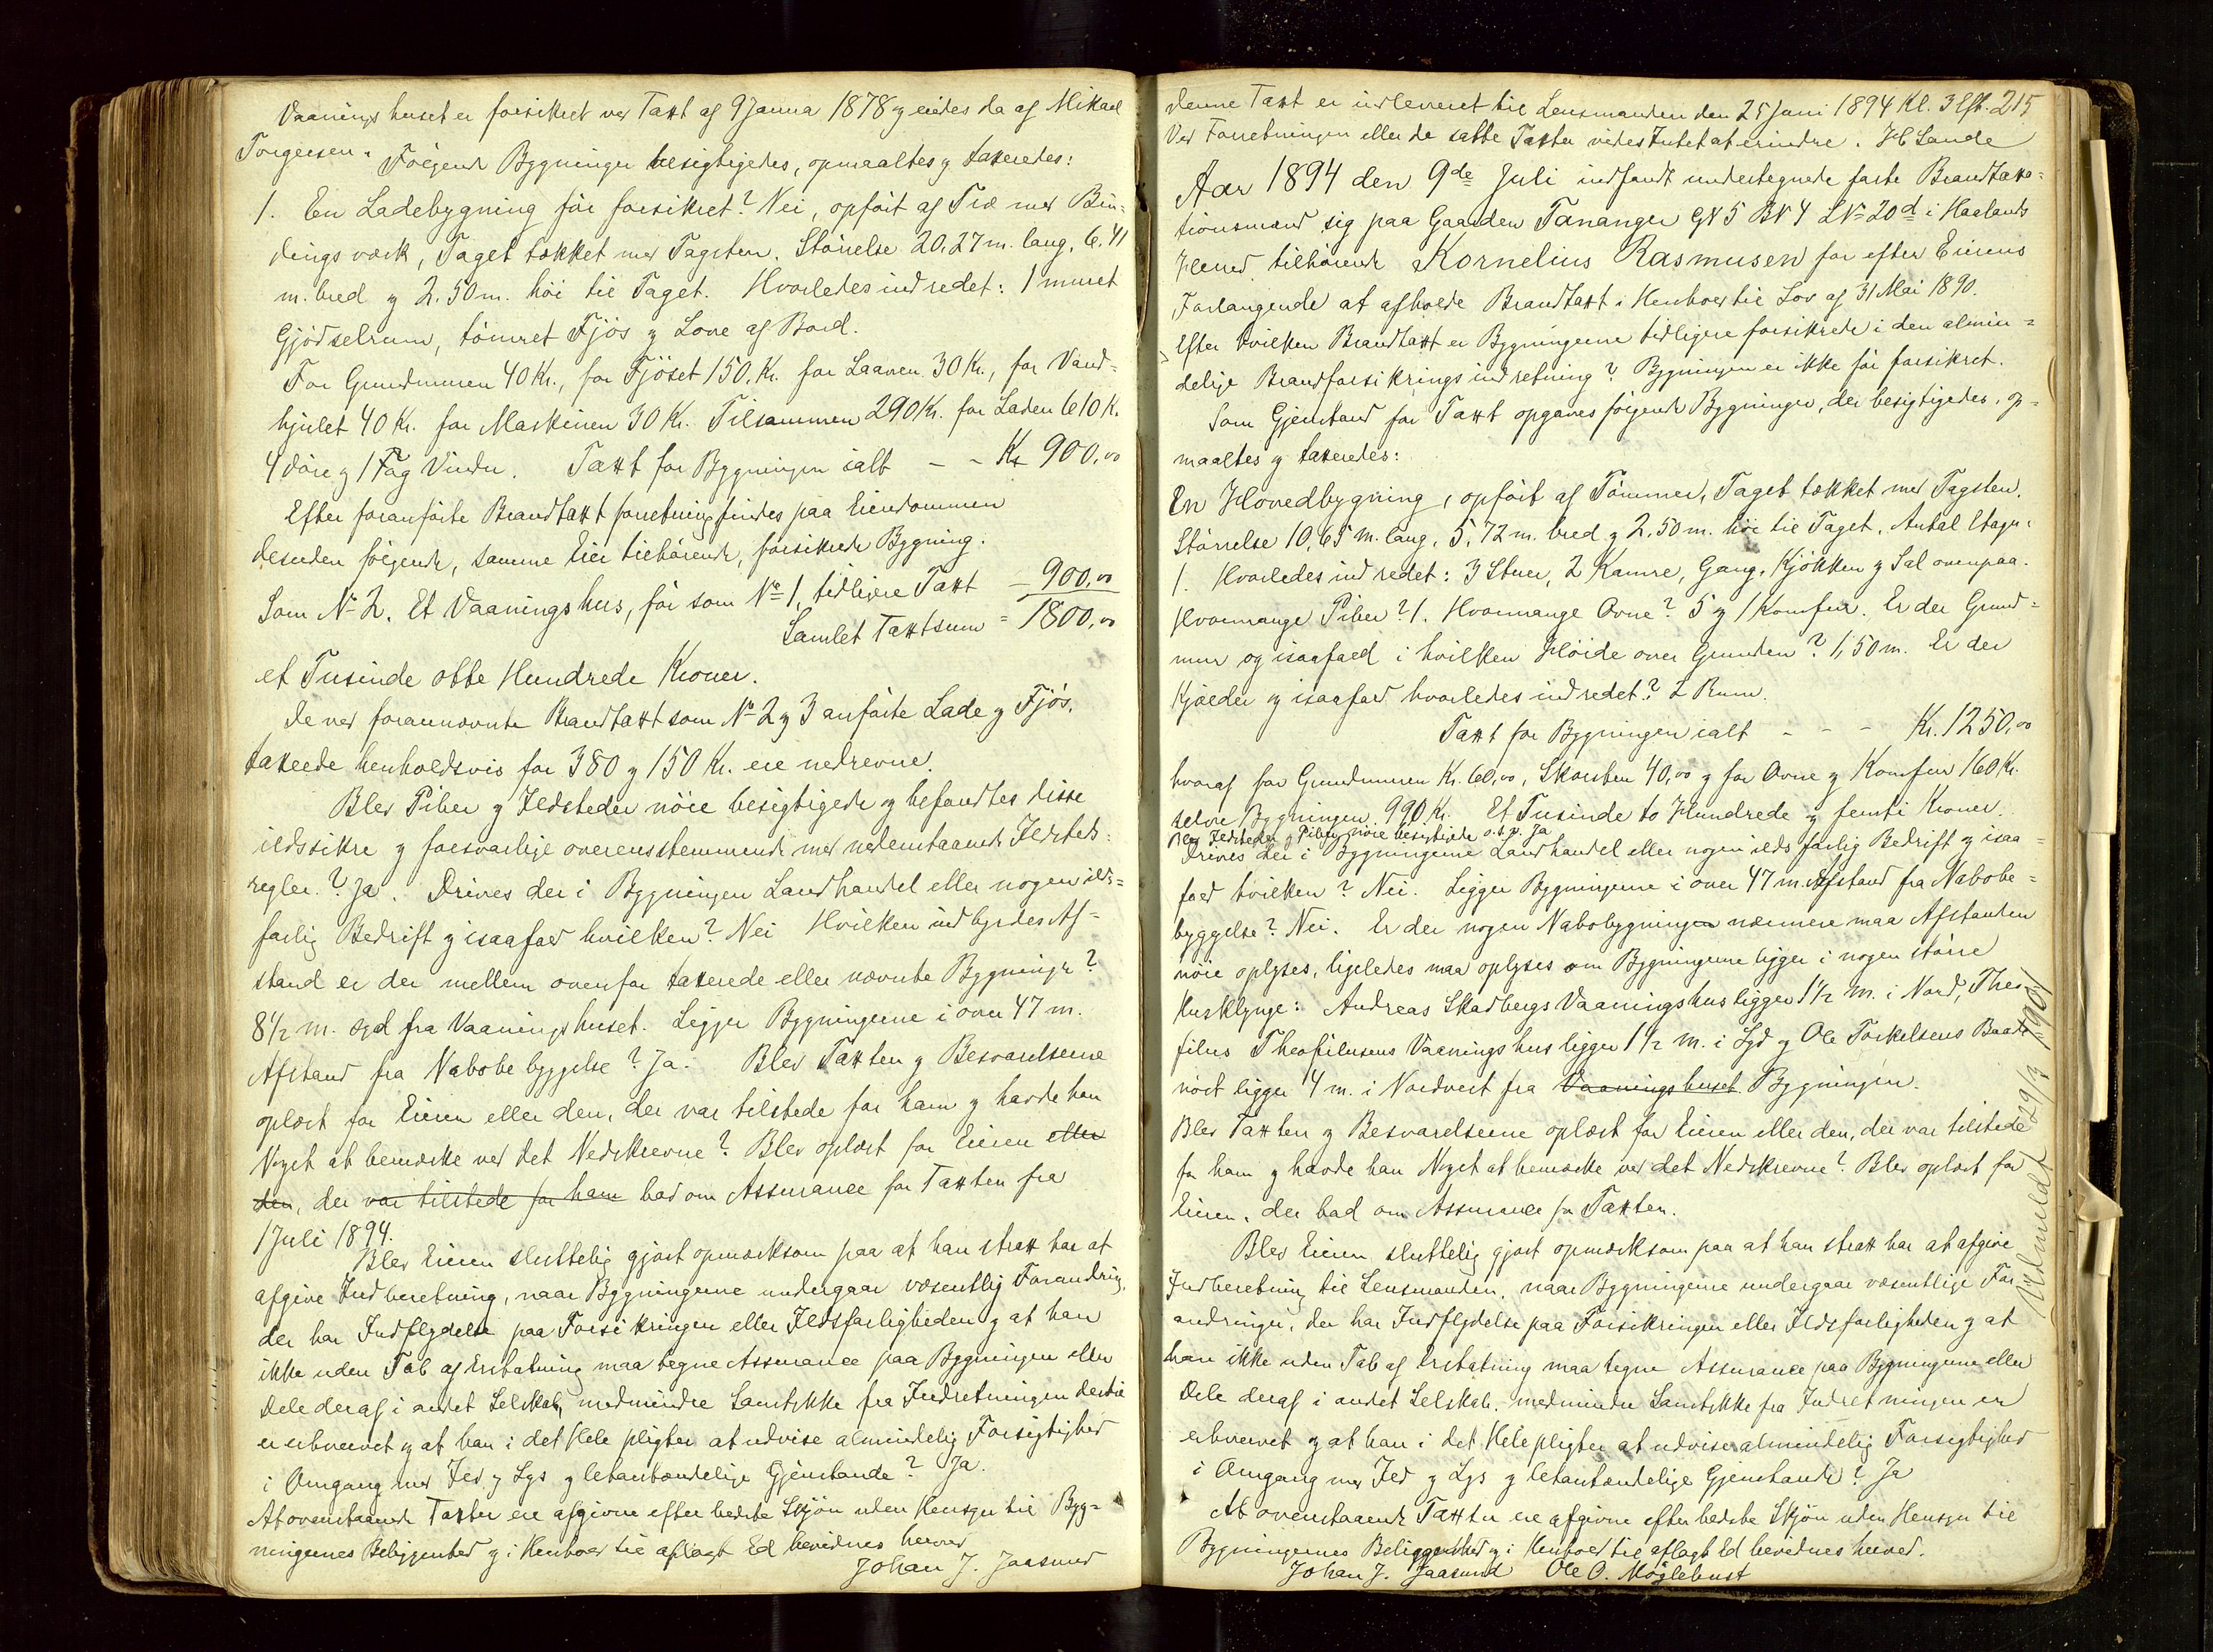 Vaanings huset er forsikret ved Taxt af 9 Janua 1878 og eiedes da af Mikael
Torgersen. Følgende Bygninger besigtigedes, opmaaltes og taxeredes:
1. En Ladebygning før forsikret? Nei, opført af Træ med Bin-
dings værk, Taget tækket med Tagsten. Størrelse 20,27 m. lang, 6,41
m. bred og 2.50 m. høi til Taget. Hvorledes indredet: 1 muret
Gjødselrum, tømret Fjøs og Love af Bord.
For Grundmuren 40 Kr., for Fjøset 150. Kr. for Laaven 30 Kr., for Vand-
hjulet 40 Kr. for Maskinen 30 Kr. Tilsammen 290 Kr. for Laden 610 K.
4 døre og 1 Fag Vindu. Taxt for Bygningen ialt - - Kr 900,00
Efter foranførte Brandtaxt forretning findes paa Eiendommen
desuden følgende, samme Eier tilhørende, forsikrede Bygning.
Som No 2. Et Vaaningshus, før som No 1, tidligere Taxt - 900,00
Samlet Taxtsum = 1800,00
et Tusinde otte Hundrede Kroner.
De ved forannævnte Brandtaxt som No 2 og 3 anførte Lade og Fjøs,
taxerede henholdsvis for 380 og 150 Kr. ere nedrevne.
Blev Piber og Ildsteder nøie besigtigede og befandtes disse
ildssikre og forsvarlige overensstemmende med nedenstaaende Ildsteds-
regler? Ja. Drives der i Bygningen Landhandel eller nogen ilds-
farlig Bedrift og isaafald hvilken? Nei Hvilken indbyrdes Af-
stand er der mellem ovenfor taxerede eller nævnte Bygninger?
8 1/2 m. syd fra Vaaningshuset. Ligger Bygningerne i over 47 m.
Afstand fra Nabobebyggelse? Ja. Blev Taxten og Besvarelserne
oplæst for Eieren eller den, der var tilstede for ham og havde han
Noget at bemærke ved det Nedskrevne? Blev oplæst for Eieren eller
den, der var tilstede for ham bad om Assurance for Taxten fra
1 Juli 1894.
Blev Eieren sluttelig gjort opmærksom paa at han strax har at
afgive Indberetning, naar Bygningerne undergaar væsentlig Forandring,
der har Indflydelse paa Forsikringen eller Ildsfarligheden og at han
ikke uden Tab af Erstatning maa tegne Assurance paa Bygningen eller
Dele deraf i andet Selskab, medmindre Samtykke fra Indretningen dertil
er erhvervet og at han i det Hele pligter at udvise almindelig Forsigtighed
i Omgang med Ild og Lys og letantændelige Gjenstande? Ja.
At ovenstaaende Taxter ere afgivne efter bedste Skjøn uden Hensyn til Byg-
ningernes Beliggenhed og i Henhold til aflagt Ed bevidnes herved
Johan J. Jaasund
Denne Taxt er udleveret til Lensmanden den 25 Juni 1894 Kl. 3 Eft. 215
Ved Forretningen eller de satte Taxter vides Intet at erindre. H Lande
Aar 1894 den 9de Juli indfandt undertegnede faste Brandtaxa-
tionsmænd sig paa Gaarden Tananger GN 5 BN 4 LNo 20d i Haalands
Herred tilhørende Kornelius Rasmusen for efter Eierens
Forlangende at afholde Brandtaxt i Henhold til Lov af 31 Mai 1890.
Efter hvilken Brandtaxt er Bygningerne tidligere forsikrede i den almin-
delige Brandforsikrings indretning? Bygningen er ikke før forsikret.
Som Gjenstand for Taxt opgaves følgende Bygninger, der besigtigedes, op-
maaltes og taxeredes:
En Hovedbygning, opført af Tømmer, Taget tækket med Tagsten,
Størrelse 10,65 m. lang, 5,72 m. bred og 2,50 m. høi til Taget. Antal Etager
1. Hvorledes indredet: 3 Stuer, 2 Kamre, Gang, Kjøkken og Sal ovenpaa.
Hvormange Piber? 1. Hvormange Ovne? 5 og 1 Komfur. Er der Grund-
mur og isaafald i hvilken Høide over Grunden? 1,50 m. Er der
Kjælder og isaafald hvorledes indredet? 2 Rum.
Taxt for Bygningen ialt - - - Kr. 1250,00
hvoraf for Grundmuren Kr. 60,00, Skorsten 40,00 og for Ovne og Komfur 160 Kr.
selve Bygningen 990 Kr. Et Tusinde to Hundrede og femti Kroner.
Blev Ildsteder og Piber nøie besigtigede o.s.v. Ja
Drives der i Bygningerne Landhandel eller nogen ilds farlig Bedrift og isaa-
fald hvilken? Nei. Ligger Bygningerne i over 47 m. Afstand fra Nabobe-
byggelse? Nei. Er der nogen Nabobygningen nærmere maa Afstanden
nøie oplyses, ligeledes maa oplyses om Bygningerne ligger i nogen større
Husklynge: Andreas Skadbergs Vaaningshus ligger 1 1/2 m. i Nord, Theo-
filus Theofilusens Vaaningshus ligger 1 1/2 m. i Syd og Ole Torkelsens Baade
nøst ligger 4 m. i Nordvest fra Vaaningshuset Bygningen.
Blev Taxten og Besvarelserne oplæst for Eieren eller den, der var tilstede
for ham og havde han Noget at bemærke ved det Nedskrevne? Blev oplæst for
Eieren, der bad om Assurance for Taxten.
Blev Eieren sluttelig gjort opmærksom paa at han strax har at afgive
Indberetning til Lensmanden, naar Bygningerne undergaar væsentlige For-
andringer, der har Indflydelse paa Forsikringen eller Ildsfarligheden og at
han ikke uden Tab af Erstatning maa tegne Assurance paa Bygningerne eller
Dele deraf i andet Selskab, medmindre Samtykke fra Indretningen er
erhvervet og at han i det Hele pligter at udvise almindelig Forsigtighed
i Omgang med Ild og Lys og letantændelige Gjenstande? Ja
At ovenstaaende Taxter ere afgivne efter bedste Skjøn uden Hensyn til
Bygningernes Beliggenhed og i Henhold til aflagt Ed bevidnes herved.
Johan J. Jaasund Ole O. Møglebust
Udmeldt 29/3 1901